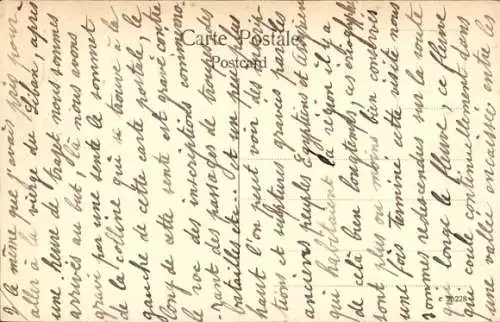 Carte Postale
Postcard
la même j'avais pris pour
aller à la vierge du Liban, après
une heure de trajet nous sommes
arrivés au but, là nous avons
gravi par une sente le sommet
de la colline qui se trouve à la
gauche de cette carte postale, le
long de cette sente est gravé contre
le roc des inscriptions commémo-
rant des passages de troupes, des
batailles etc... et un peu plus
haut l'on peut voir des inscrip-
tions et sculptures gravées par les
anciens peuples Egyptiens et Assyriens
qui habitaient la région il y a
de celà bien longtemps, ces
sont plus ou moins bien conservés
une fois terminé cette visite nous
sommes redescendus sur la route
qui longe le fleuve, ce fleuve
qui coule continuellement dans
une vallée encaissée entre les
e 76228